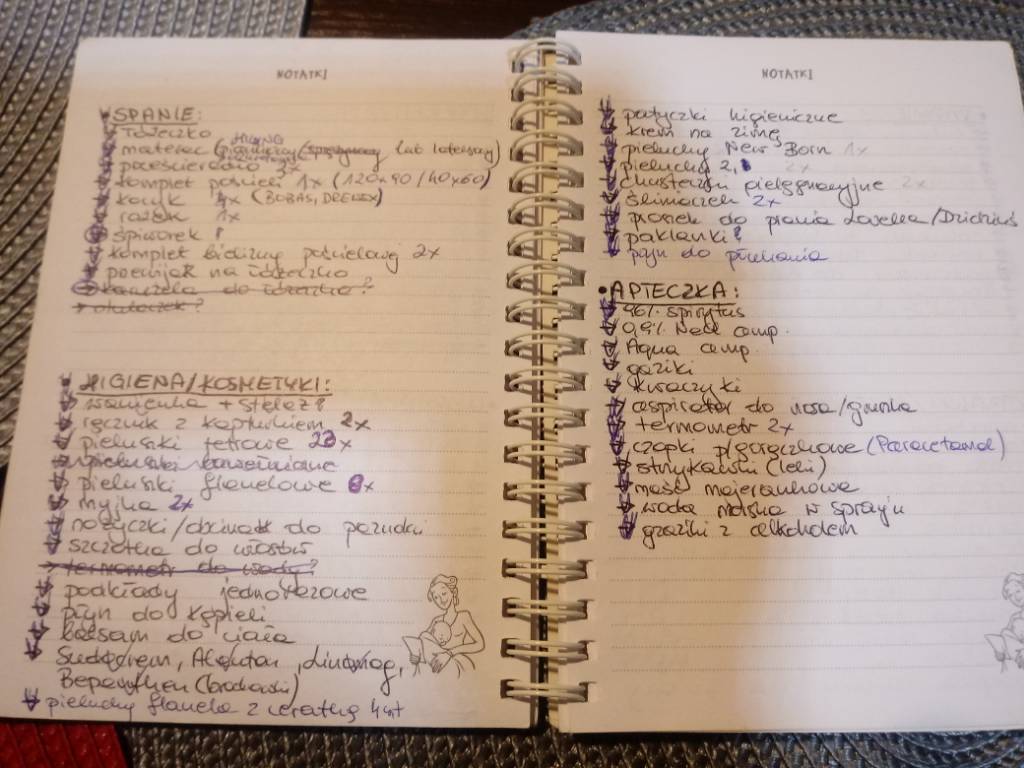 NOTATKI
SPANIE:
łóżeczko
materac lateksowy)
prześcieradło 3x
komplet pościeli 1x (120x90/40x60)
kocyk 4x (BOBAS,
rożek 1x
śpiworek ?
komplet bielizny pościelowej 2x
pojemnik na łóżeczko
karuzela do łóżeczka?
HIGIENA/KOSMETYKI:
wanienka + stelaż?
ręcznik z kapturkiem 2x
pieluszki tetrowe x
pieluszki bawełniane
pieluszki flanelowe x
myjka 2x
nożyczki/ do paznokci
szczotka do włosów
termometr do wody?
podkłady jednorazowe
płyn do kąpieli
balsam do ciała
Sudokrem, Alantan, Linomag,
Bepanthen (brodawki)
pieluchy flanela z ceratką 4szt
NOTATKI
patyczki higieniczne
krem na zimę
pieluchy New Born 1x
pieluchy 2, 2x
chusteczki pielęgnacyjne 2x
śliniaczek 2x
proszek do prania Lovella/Dzidziuś
płyn do płukania
APTECZKA:
96% spirytus
0,9% NaCl amp.
Aqua amp.
gaziki
aspirator do nosa/gruszka
termometr 2x
czopki p/gorączkowe (Paracetamol)
strzykawki (leki)
maść majerankowa
woda morska w spray'u
gaziki z alkoholem